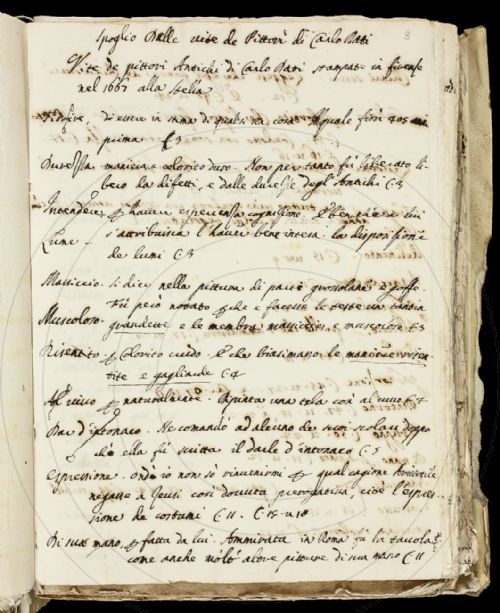 Spoglio Dalle vite de Pittori di Carlo Dati
8
Vite de pittori Antichi di Carlo Dati stampate in firenze
nel 1667 alla Stella
di essere in stima di qualsisia cosa. Il quale fiorì
prima C 3
Durezza. maniera e colorito duro. Non per tanto fu liberato
bero da difetti, e dalle durezze degl'Antichi C 3
Intendere, p havere esperienza cognizione. E ben che a lui
Lume - s'attribuisca l'havere bene intesa la disposizione
de lumi C 3
Massiccio. si dice nella pittura di parte grossolane e goffe.
Fu però notato p che e facesse le teste un tantin
Muscoloso. grandette e le membra massiccie, e muscolose C 3
Risentito. p Colorito crudo. E che biasimano le maniere risen
tite e gagliarde C 4
Al vivo p naturalmente. Dipinta una tela così al vivo C 4
Dar d'intonaco. He comandò ad alcuno de suoi scolari doppo
che ella fu scritta il darle d'intonaco C 5
Espressione. onde io non so rinvenirmi p qual cagione Aristotile
negasse a Zeusi così dovuta prerogativa, cioè l'espres
sione de costumi C 11. C 15 u 18
Di sua mano. p fatta da lui. Ammirata in Roma fu la tavola
come anche molte altre pitture di sua mano C 11